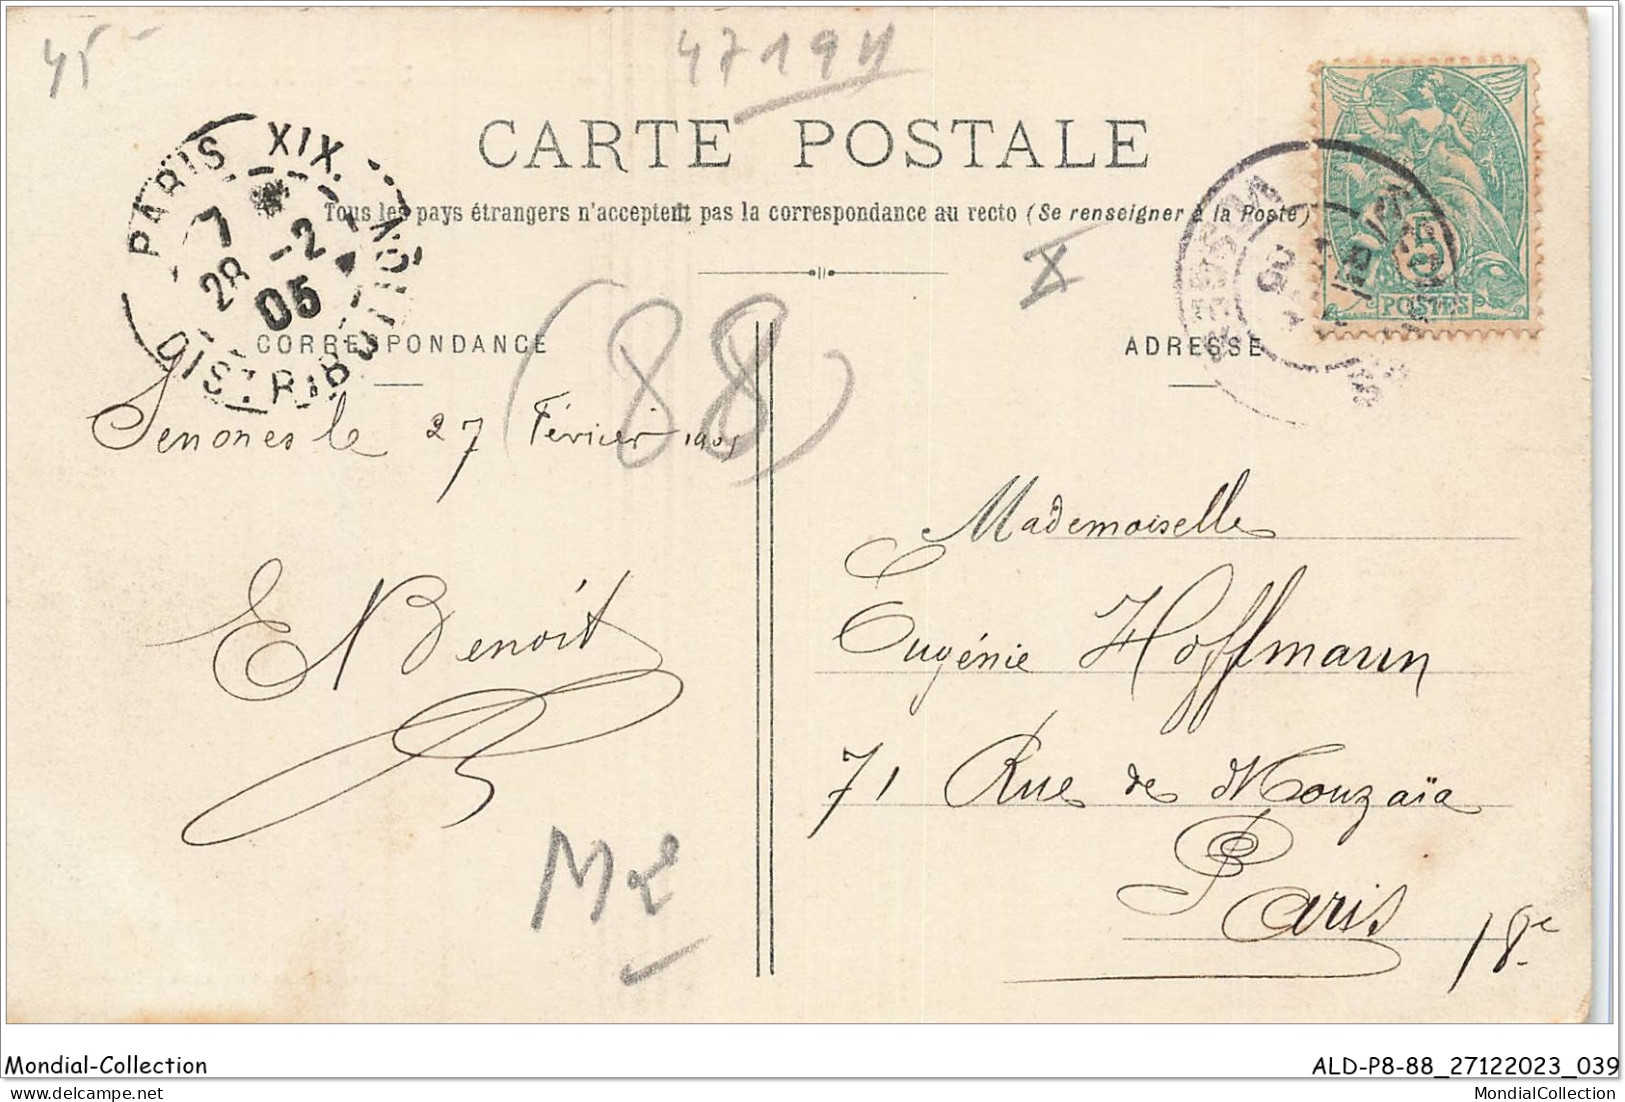 45
4719H
CARTE POSTALE
Tous les pays étrangers n'acceptent pas la correspondance au recto (Se renseigner à la Poste)
PARIS XIX
7 28 -2 05
DISTRIBUTION
X
5
POSTES
VOSGES
CORRESPONDANCE
ADRESSE
(88)
Senones le 27 Février 1905
Mademoiselle
Eugénie Hoffmann
E Benoit
71 Rue de Mouzaïa
Paris 18e
Mondial-Collection
ALD-P8-88_27122023_039
MondialCollection